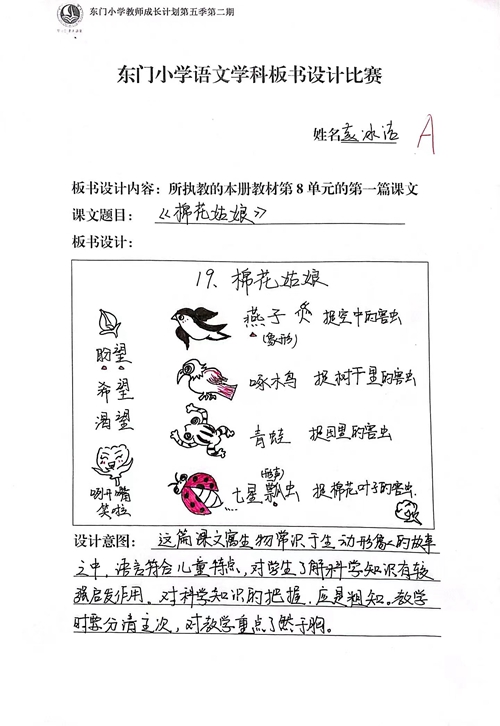 东门小学教师成长计划第五季第二期
东门小学语文学科板书设计比赛
姓名袁冰洁 A
板书设计内容:所执教的本册教材第8单元的第一篇课文
课文题目:《棉花姑娘》
板书设计:
19、棉花姑娘
燕子 捉空中的害虫
(象形)
盼望
希望
啄木鸟 捉树干里的害虫
渴望
青蛙 捉田里的害虫
(形声)
七星瓢虫 捉棉花叶子的害虫
咧开嘴
笑啦
设计意图:这篇课文寓生物常识于生动形象的故事
之中,语言符合儿童特点,对学生了解科学知识有较
强启发作用。对科学知识的把握,应是粗知。教学
时要分清主次,对教学重点了然于胸。